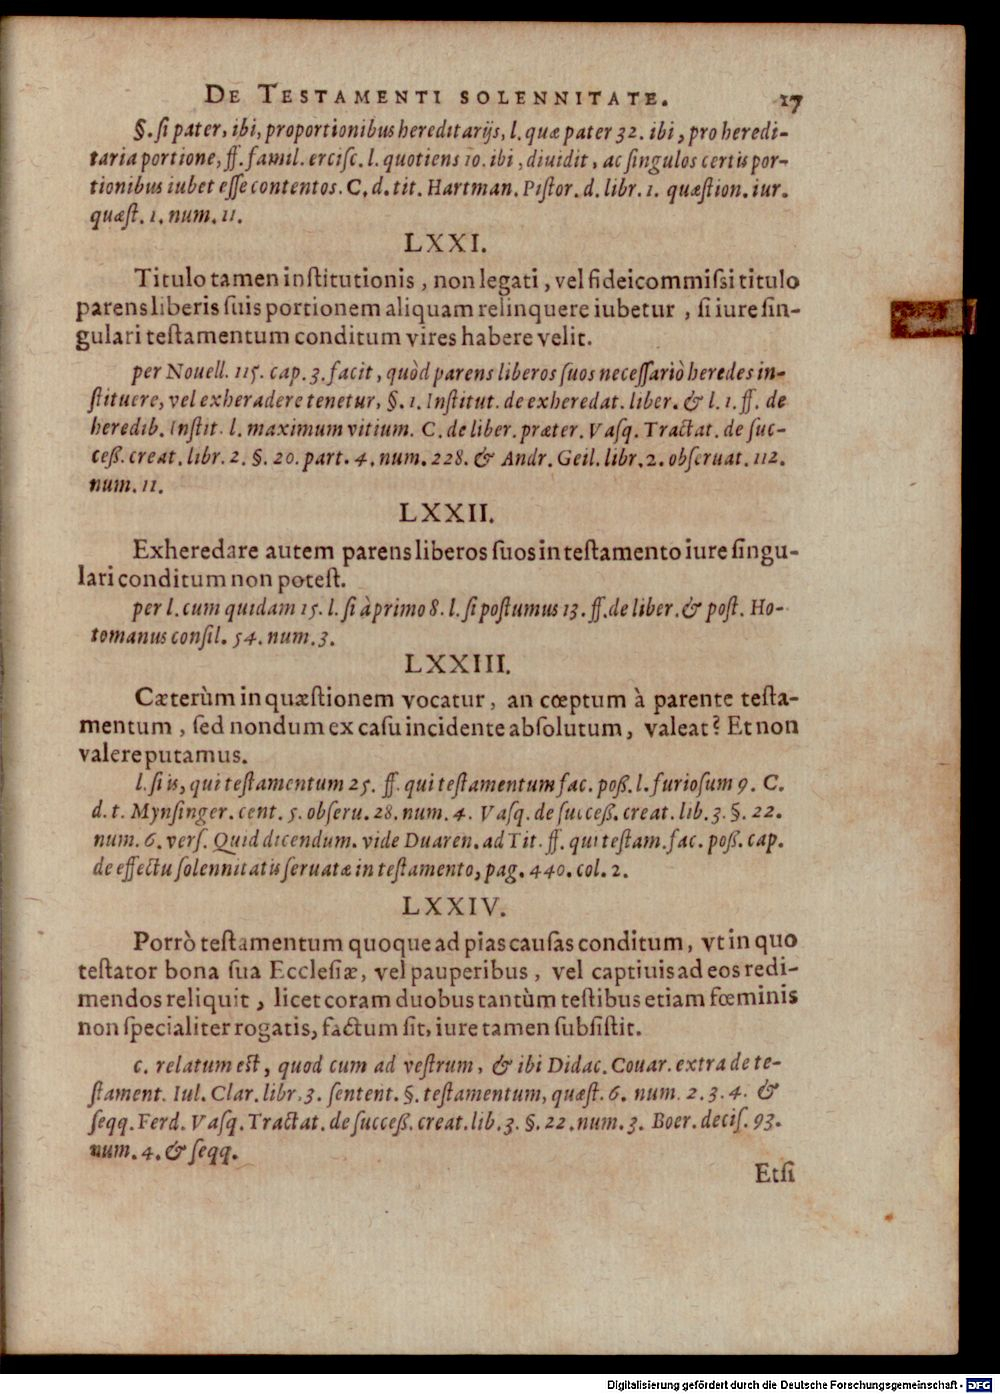 DE TESTAMENTI SOLENNITATE. 17
§. ſi pater, ibi, proportionibus hereditarijs, l. quæ pater 32. ibi, pro heredi-
taria portione, ff. famil. erciſc. l. quotiens 10. ibi, diuidit, ac ſingulos certis por-
tionibus iubet eſſe contentos. C. d. tit. Hartman. Piſtor. d. libr. 1. quæſtion. iur.
quæſt. 1. num. 11.
LXXI.
Titulo tamen inſtitutionis, non legati, vel fideicommiſsi titulo
parens liberis ſuis portionem aliquam relinquere iubetur, ſi iure ſin-
gulari teſtamentum conditum vires habere velit.
per Nouell. 115. cap. 3. facit, quòd parens liberos ſuos neceſſariò heredes in-
ſtituere, vel exheradere tenetur, §. 1. Inſtitut. de exheredat. liber. & l. 1. ff. de
heredib. Inſtit. l. maximum vitium. C. de liber. præter. Vaſq. Tractat. de ſuc-
ceß. creat. libr. 2. §. 20. part. 4. num. 228. & Andr. Geil. libr. 2. obſeruat. 112.
num. 11.
LXXII.
Exheredare autem parens liberos ſuos in teſtamento iure ſingu-
lari conditum non poteſt.
per l. cum quidam 15. l. ſi à primo 8. l. ſi poſtumus 13. ff. de liber. & poſt. Ho-
tomanus conſil. 54. num. 3.
LXXIII.
Cæterùm in quæſtionem vocatur, an cœptum à parente teſta-
mentum, ſed nondum ex caſu incidente abſolutum, valeat? Et non
valere putamus.
l. ſi is, qui teſtamentum 25. ff. qui teſtamentum fac. poß. l. furioſum 9. C.
d. t. Mynſinger. cent. 5. obſeru. 28. num. 4. Vaſq. de ſucceß. creat. lib. 3. §. 22.
num. 6. verſ. Quid dicendum. vide Duaren. ad Tit. ff. qui teſtam. fac. poß. cap.
de effectu ſolennitatis ſeruatæ in teſtamento, pag. 440. col. 2.
LXXIV.
Porrò teſtamentum quoque ad pias cauſas conditum, vt in quo
teſtator bona ſua Eccleſiæ, vel pauperibus, vel captiuis ad eos redi-
mendos reliquit, licet coram duobus tantùm teſtibus etiam fœminis
non ſpecialiter rogatis, factum ſit, iure tamen ſubſiſtit.
c. relatum eſt, quod cum ad veſtrum, & ibi Didac. Couar. extra de te-
ſtament. Iul. Clar. libr. 3. ſentent. §. teſtamentum, quæſt. 6. num. 2. 3. 4. &
ſeqq. Ferd. Vaſq. Tractat. de ſucceß. creat. lib. 3. §. 22. num. 3. Boer. deciſ. 93.
num. 4. & ſeqq.
Etſi
Digitalisierung gefördert durch die Deutsche Forschungsgemeinschaft - DFG